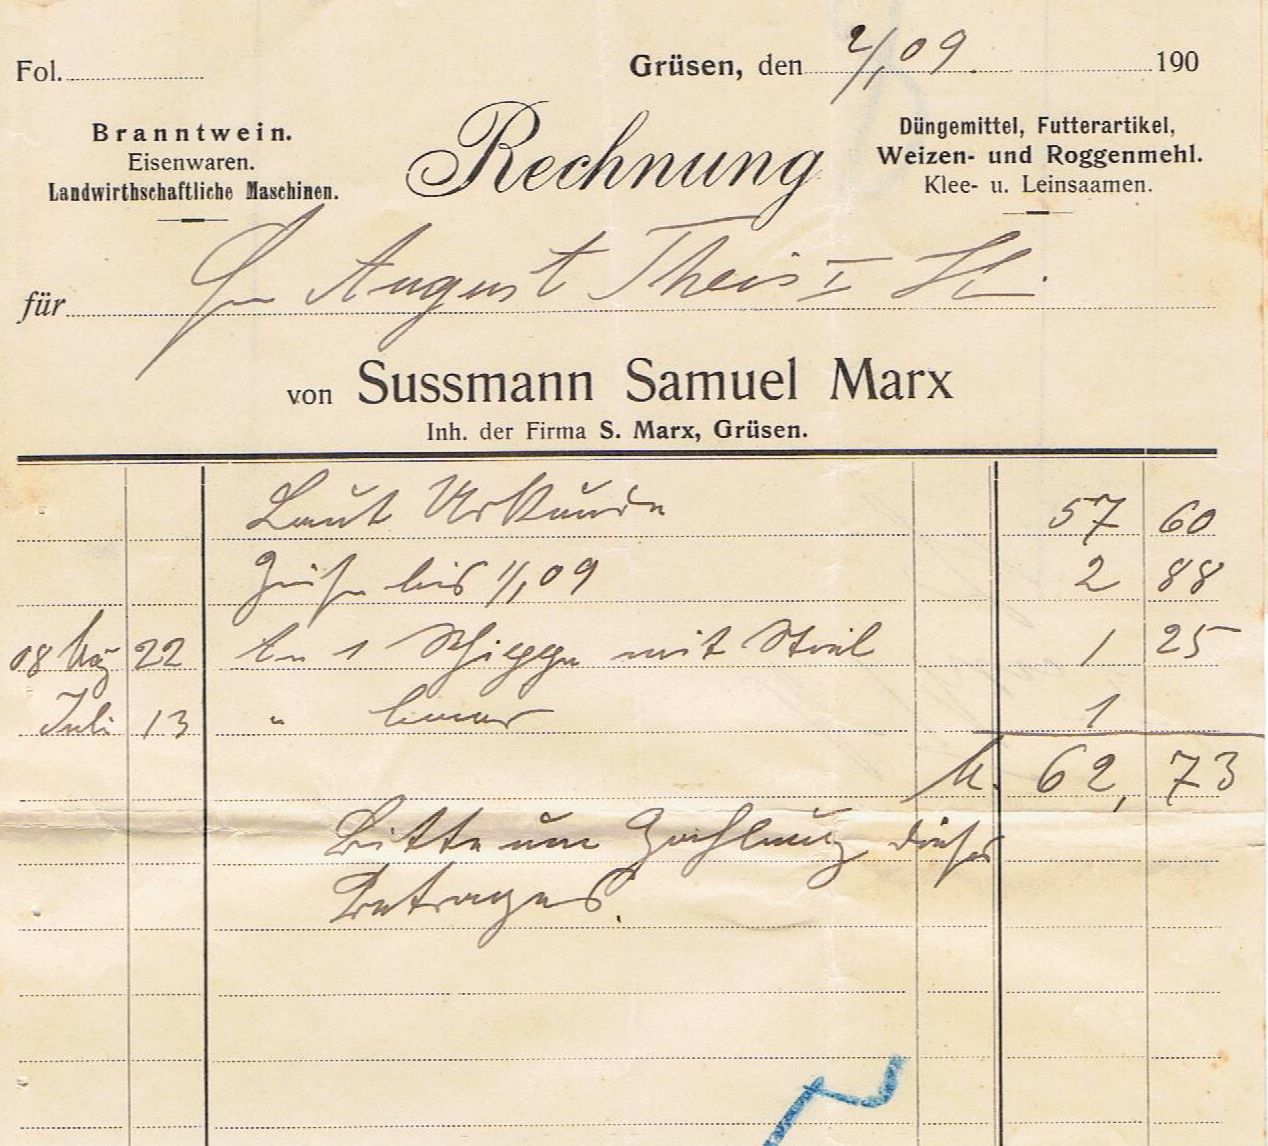 Fol.
Grüsen, den 2/1 09. 190
Branntwein.
Eisenwaren.
Landwirthschaftliche Maschinen.
Rechnung
Düngemittel, Futterartikel,
Weizen- und Roggenmehl.
Klee- u. Leinsaamen.
für August Theis I
von Sussmann Samuel Marx
Inh. der Firma S. Marx, Grüsen.
Laut Urkunde 57 60
Zinsen bis 1/1 09 2 88
08 Mai 22 1 Schippe mit Stiel 1 25
Juli 13 " 1
M. 62,73
Bitte um Zahlung dieses
Betrages.